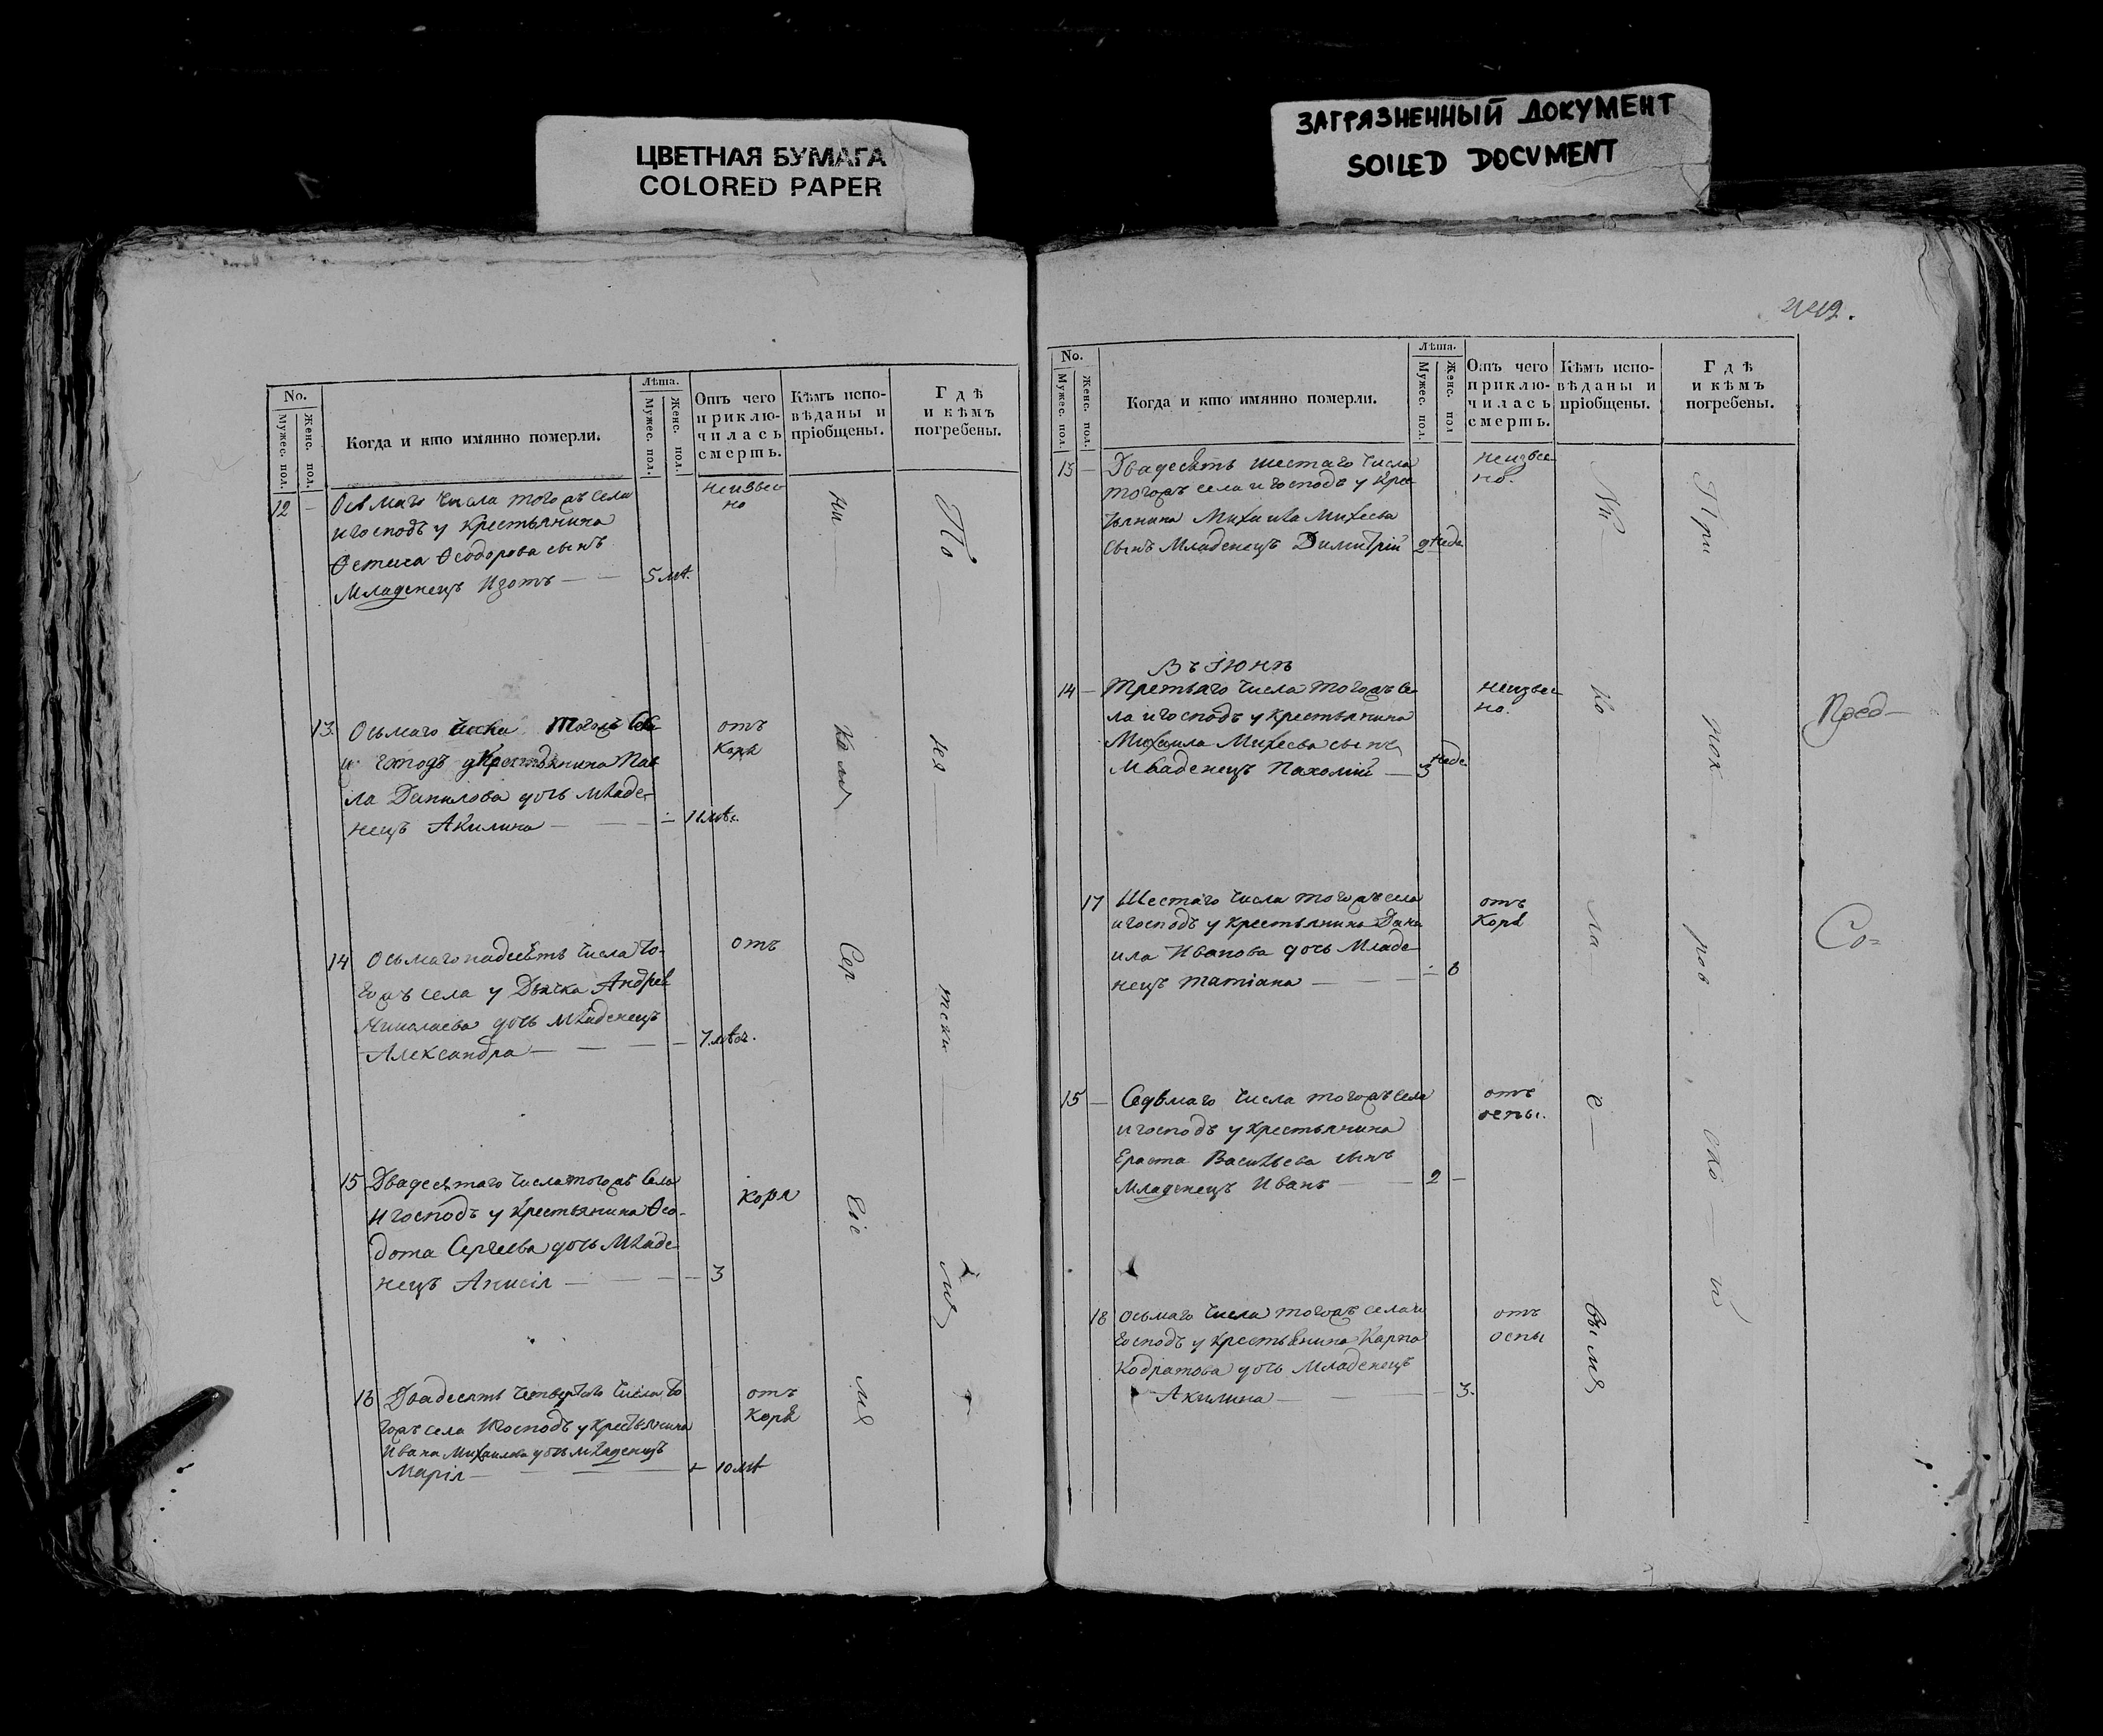 ЦВЕТНАЯ БУМАГА
COLORED PAPER
ЗАГРЯЗНЕННЫЙ ДОКУМЕНТ
SOILED DOCUMENT
No.
Мужес. пол.
Женс. пол.
Когда и кто имянно померли.
Лѣта.
Мужес. пол.
Женс. пол.
Отъ чего
приклю-
чилась
смерть.
Кѣмъ испо-
вѣданы и
пріобщены.
Гдѣ
и кѣмъ
погребены.
12 — Осьмаго числа тогожъ села
и господъ у крестьянина
Ѳеодорова сынъ
Младенецъ Изотъ — — 5
неизвес
но
13. Осьмаго числа тогожъ села
и господъ у крестьянина Пав
ла Данилова дочь младе-
нецъ Акилина — — 11
отъ
коря
14 Осьмагонадесѣть числа то-
гожъ села у Дьячка Андрея
Николаева дочь младенецъ
Александра — — — 7
отъ
15 Двадесятаго числа тогожъ села
и господъ у крестьянина Ѳео-
дота Сергеева дочь младе
нецъ Анисія — — — 3
коря
16 Двадесять четвертаго числа то
гожъ села и господъ у крестьянина
Ивана Михайлова дочь младенецъ
Марія — — 10
отъ
коря
По
тски
мъ
442.
No.
Мужес. пол.
Женс. пол.
Когда и кто имянно померли.
Лѣта.
Мужес. пол.
Женс. пол
Отъ чего
приклю-
чилась
смерть.
Кѣмъ испо-
вѣданы и
пріобщены.
Гдѣ
и кѣмъ
погребены.
13 — Двадесять шестаго числа
тогожъ села и господъ у крес
тьянина Михаила Михеева
сынъ младенецъ Димитрій 2 неде
неизвес
но.
Въ Іюнѣ
14 — Третьяго числа тогожъ се
ла и господъ у крестьянина
Михаила Михеева сынъ
младенецъ Пахомій — 3 неде
неизвес
но.
17 Шестаго числа тогожъ села
и господъ у крестьянина Дани
ила Иванова дочь младе
нецъ Татіана — —
отъ
коря
15 — Седьмаго числа тогожъ села
и господъ у крестьянина
Ераста Васильева сынъ
младенецъ Иванъ — — 2 —
отъ
оспы.
18 Осьмаго числа тогожъ села и
господъ у крестьянина Карпа
Кодратова дочь младенецъ
Акилина — — 3.
отъ
оспы
Ни
ко
ла
е
вымъ
При
пок
ров
ско
й
Пред-
Со=